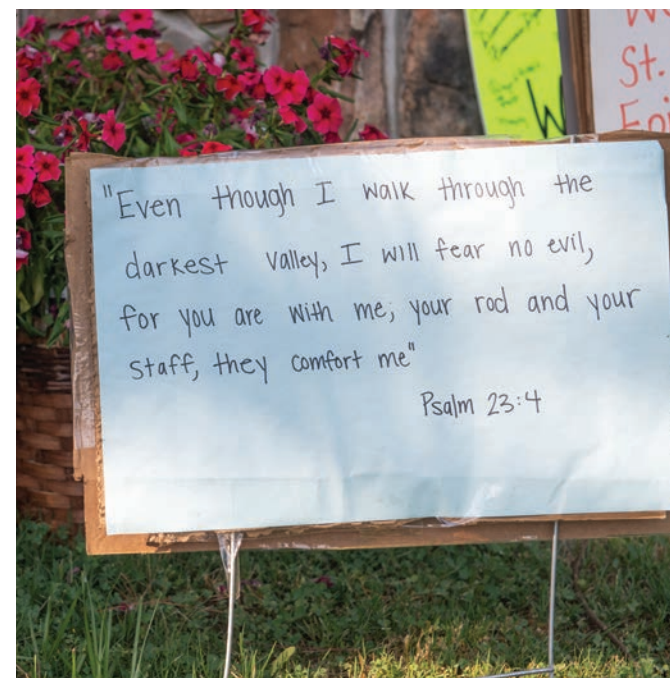 "Even though I walk through the
darkest valley, I will fear no evil,
for you are with me; your rod and your
staff, they comfort me"
Psalm 23:4
St.